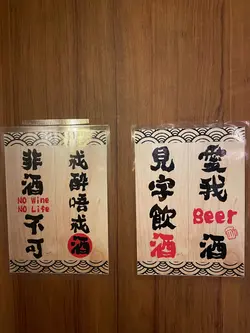 戒醉唔戒酒
非酒不可
NO Wine
NO Life
愛我
Beer
酒
見字飲酒